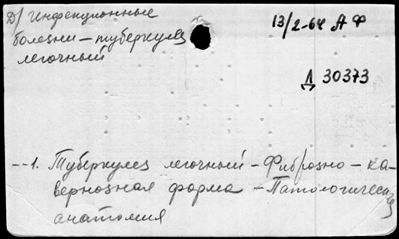 Д/ Инфекционные
болезни – туберкулез
легочный
13/2-64 А Ф
Д 30373
--1. Туберкулез легочный – Фиброзно – ка-
вернозная форма – Патологическая
анатомия